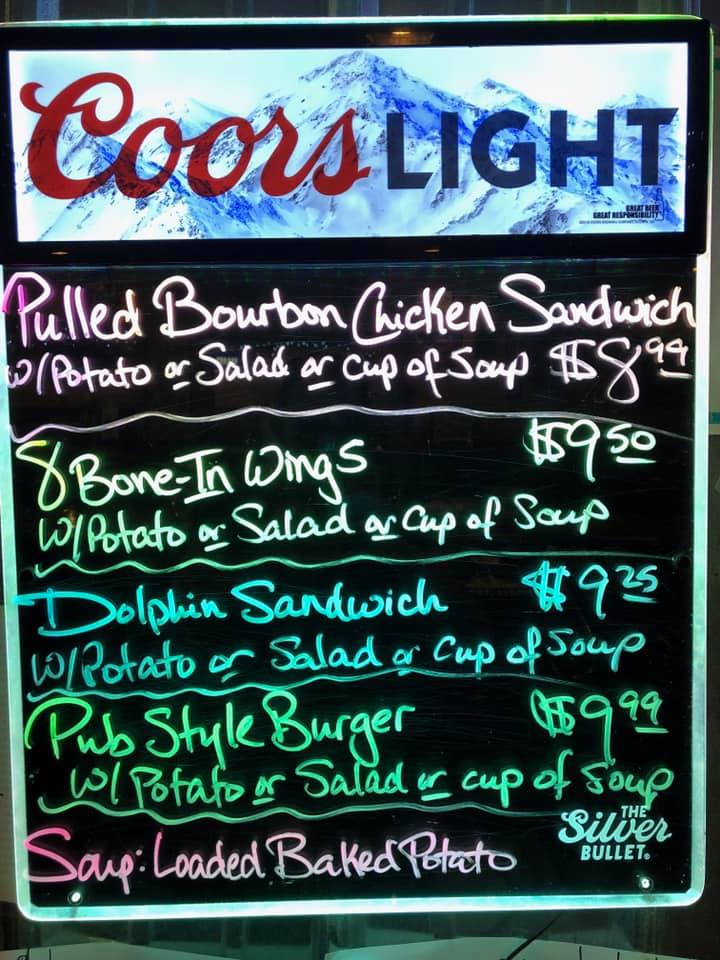 Coors LIGHT
GREAT BEER
GREAT RESPONSIBILITY
Pulled Bourbon Chicken Sandwich
w/Potato or Salad or Cup of Soup $8.99
8 Bone-In Wings $9.50
w/Potato or Salad or Cup of Soup
Dolphin Sandwich $9.25
w/Potato or Salad or Cup of Soup
Pub Style Burger $9.99
w/Potato or Salad or cup of Soup
THE
Silver
BULLET.
Soup: Loaded Baked Potato